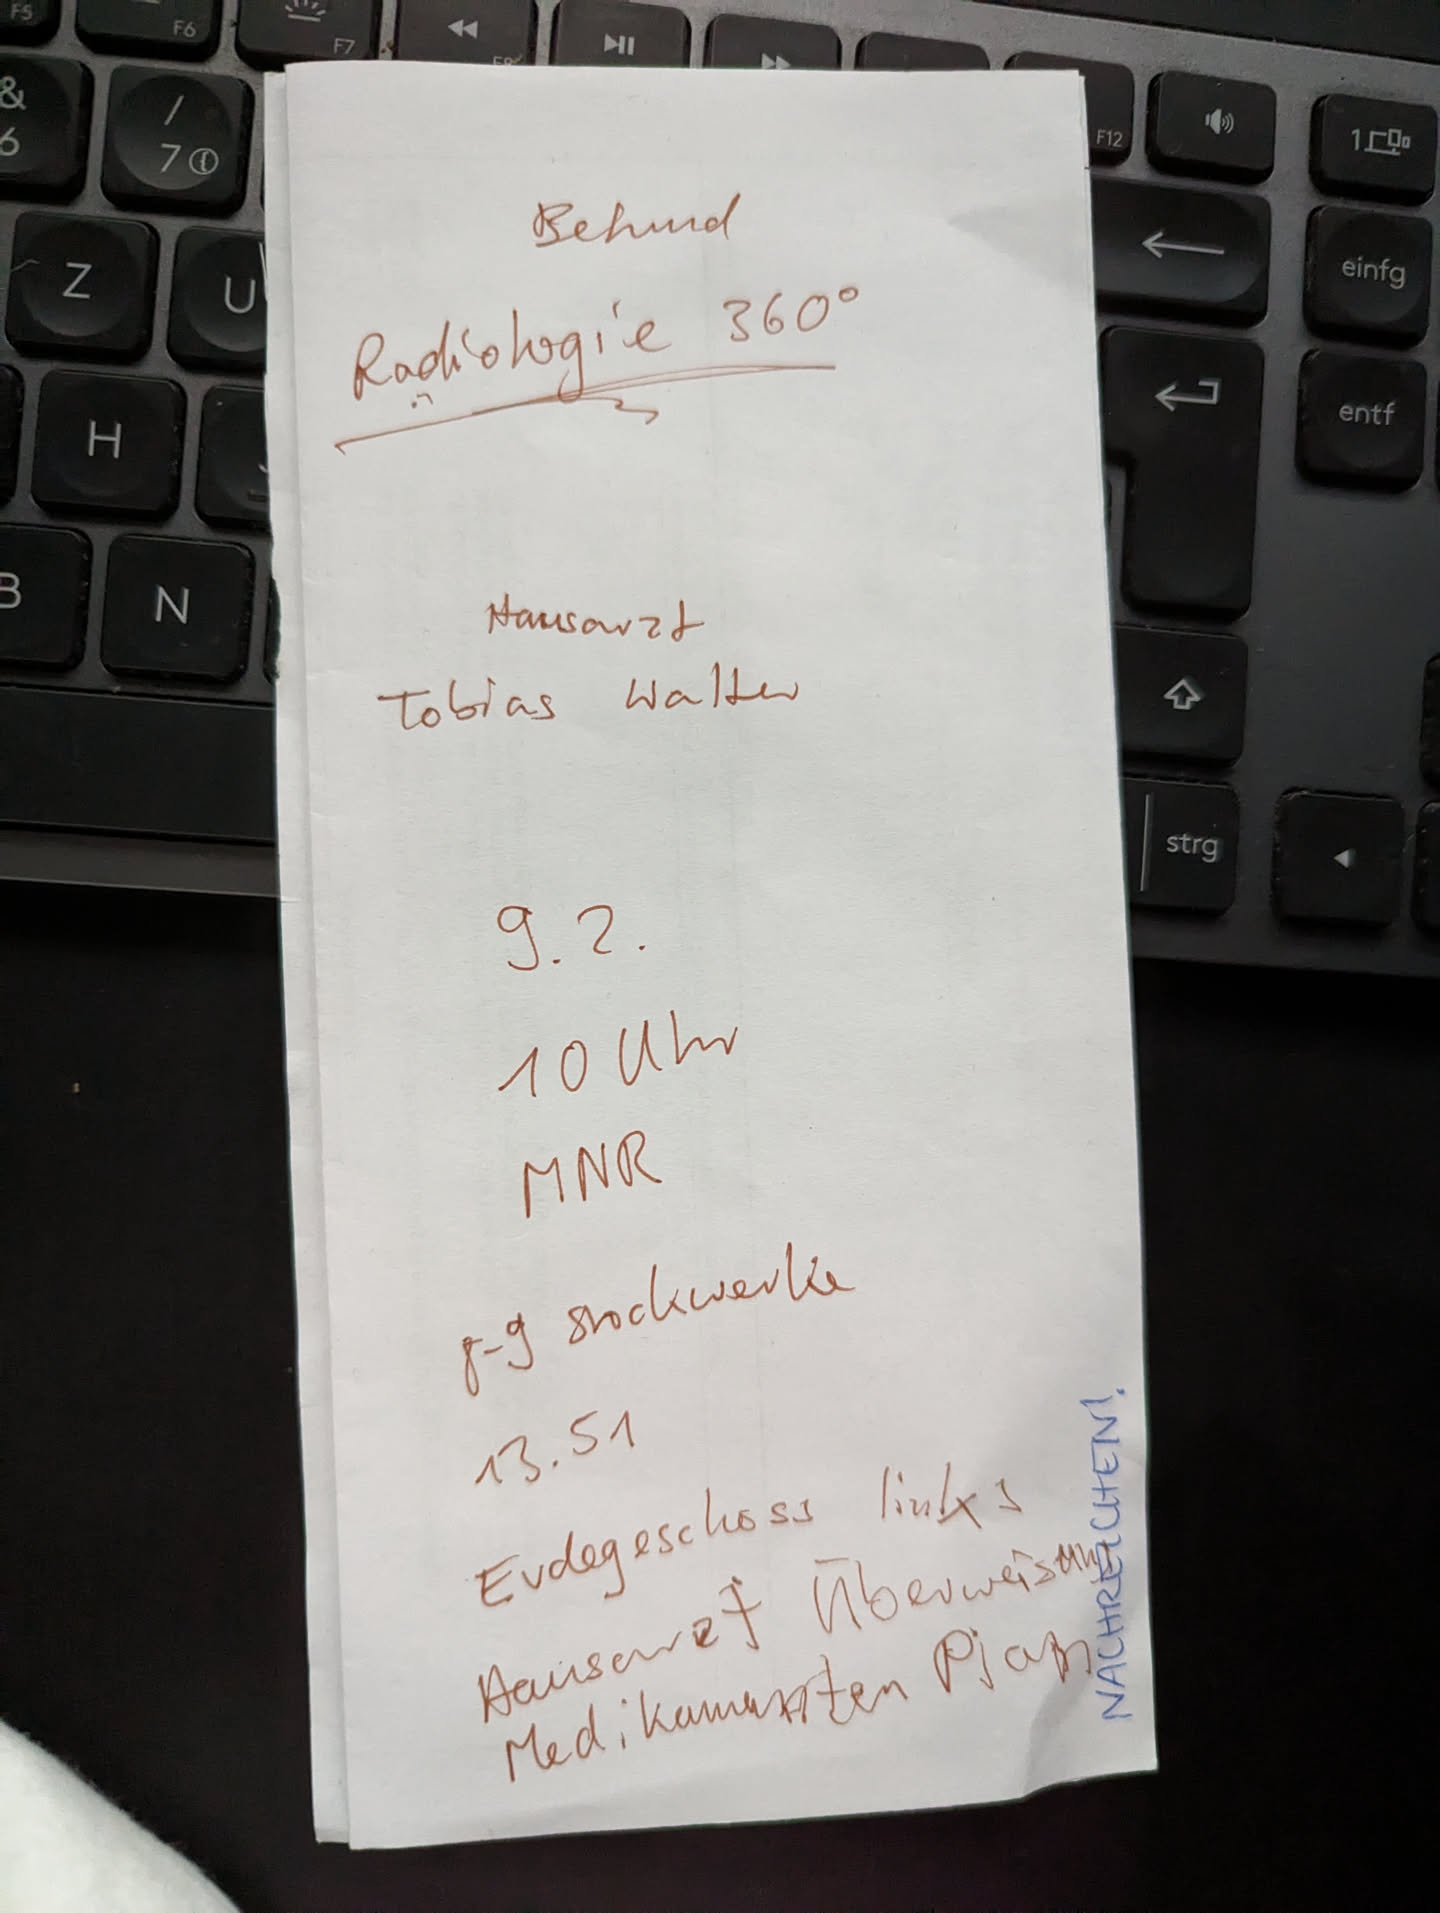 F5
F6
F7
F12
&
6
/
7
Z
U
einfg
H
entf
B
N
strg
Befund
Radiologie 360°
Hausarzt
Tobias Walter
9.2.
10 Uhr
MNR
8-9 Stockwerke
13.51
Erdegeschoss links
Hausarzt Überweisung
Medikamenten Plan
NACHREICHEN!